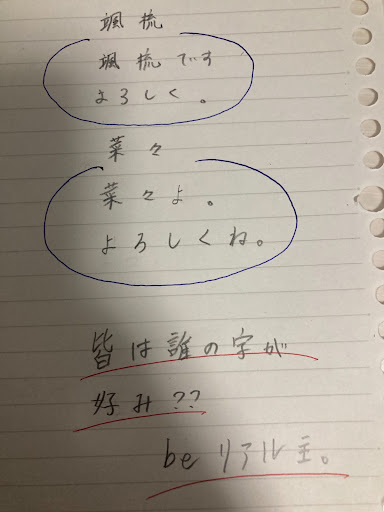 颯梳
颯梳です
よろしく。
菜々
菜々よ。
よろしくね。
皆は誰の字が
好み??
beリアル主。